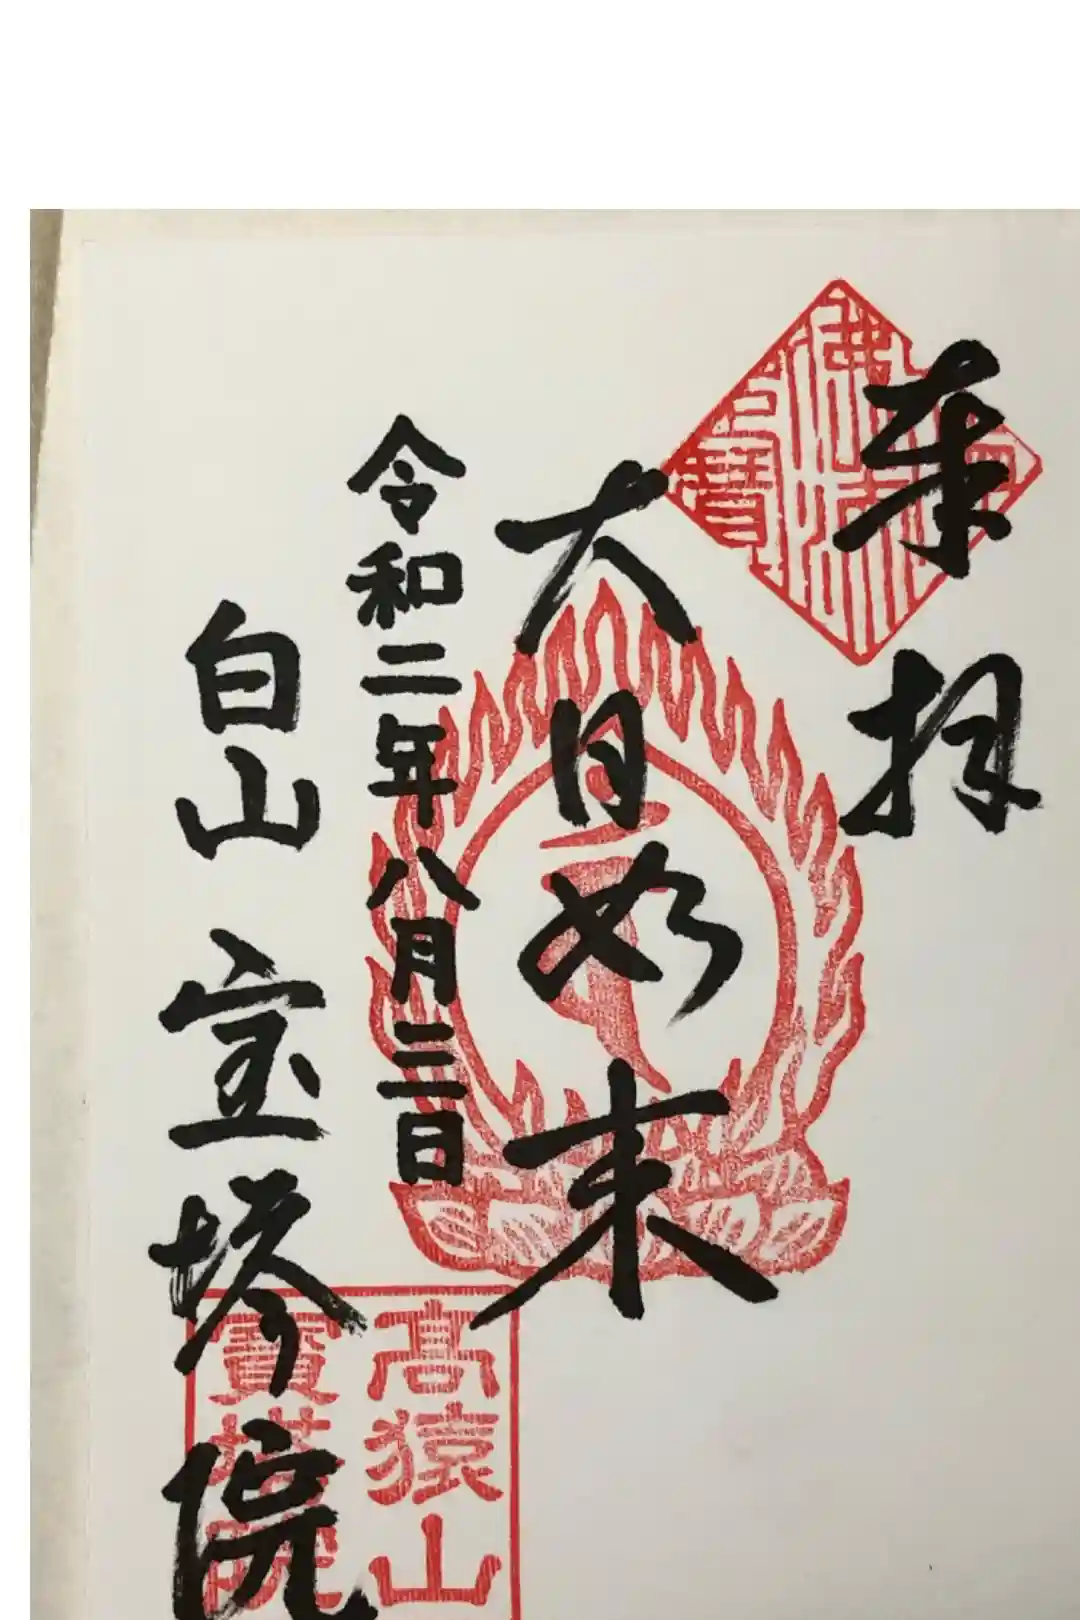 奉拝
大日如来
令和二年八月三日
白山 宝塔院
高猿山
寶塔院